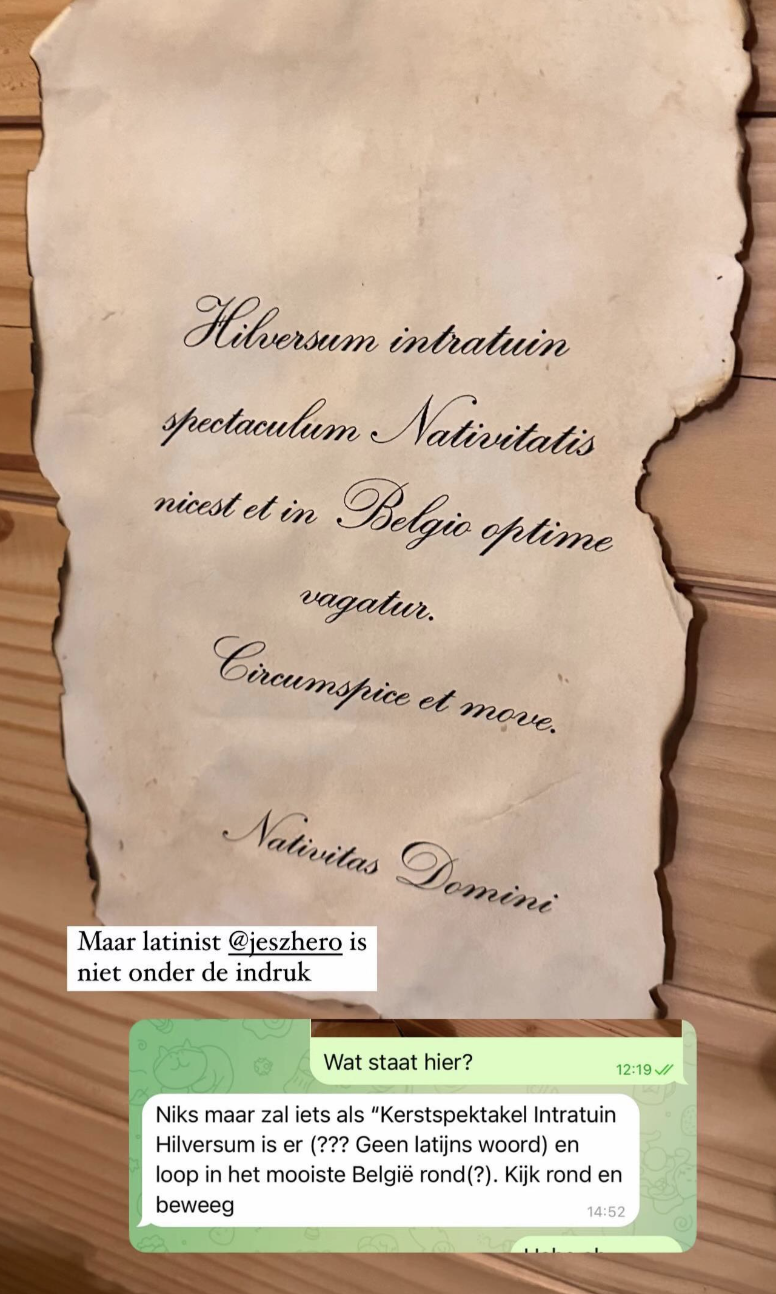 Hilversum intratuin
spectaculum Nativitatis
nicest et in Belgio optime
vagatur.
Circumspice et move.
Nativitas Domini
Maar latinist @jeszhero is
niet onder de indruk
Wat staat hier?
12:19
Niks maar zal iets als “Kerstspektakel Intratuin
Hilversum is er (??? Geen latijns woord) en
loop in het mooiste België rond(?). Kijk rond en
beweeg
14:52